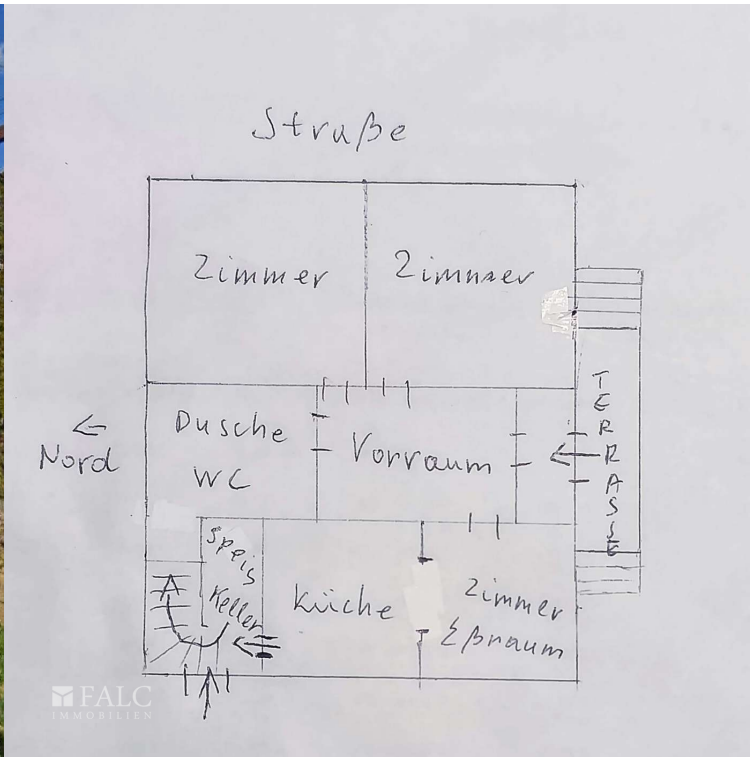 Straße
Zimmer
Zimmer
Dusche
WC
Vorraum
TERRASSE
←
Nord
Speis
Keller
Küche
Zimmer
Eßraum
FALC
IMMOBILIEN